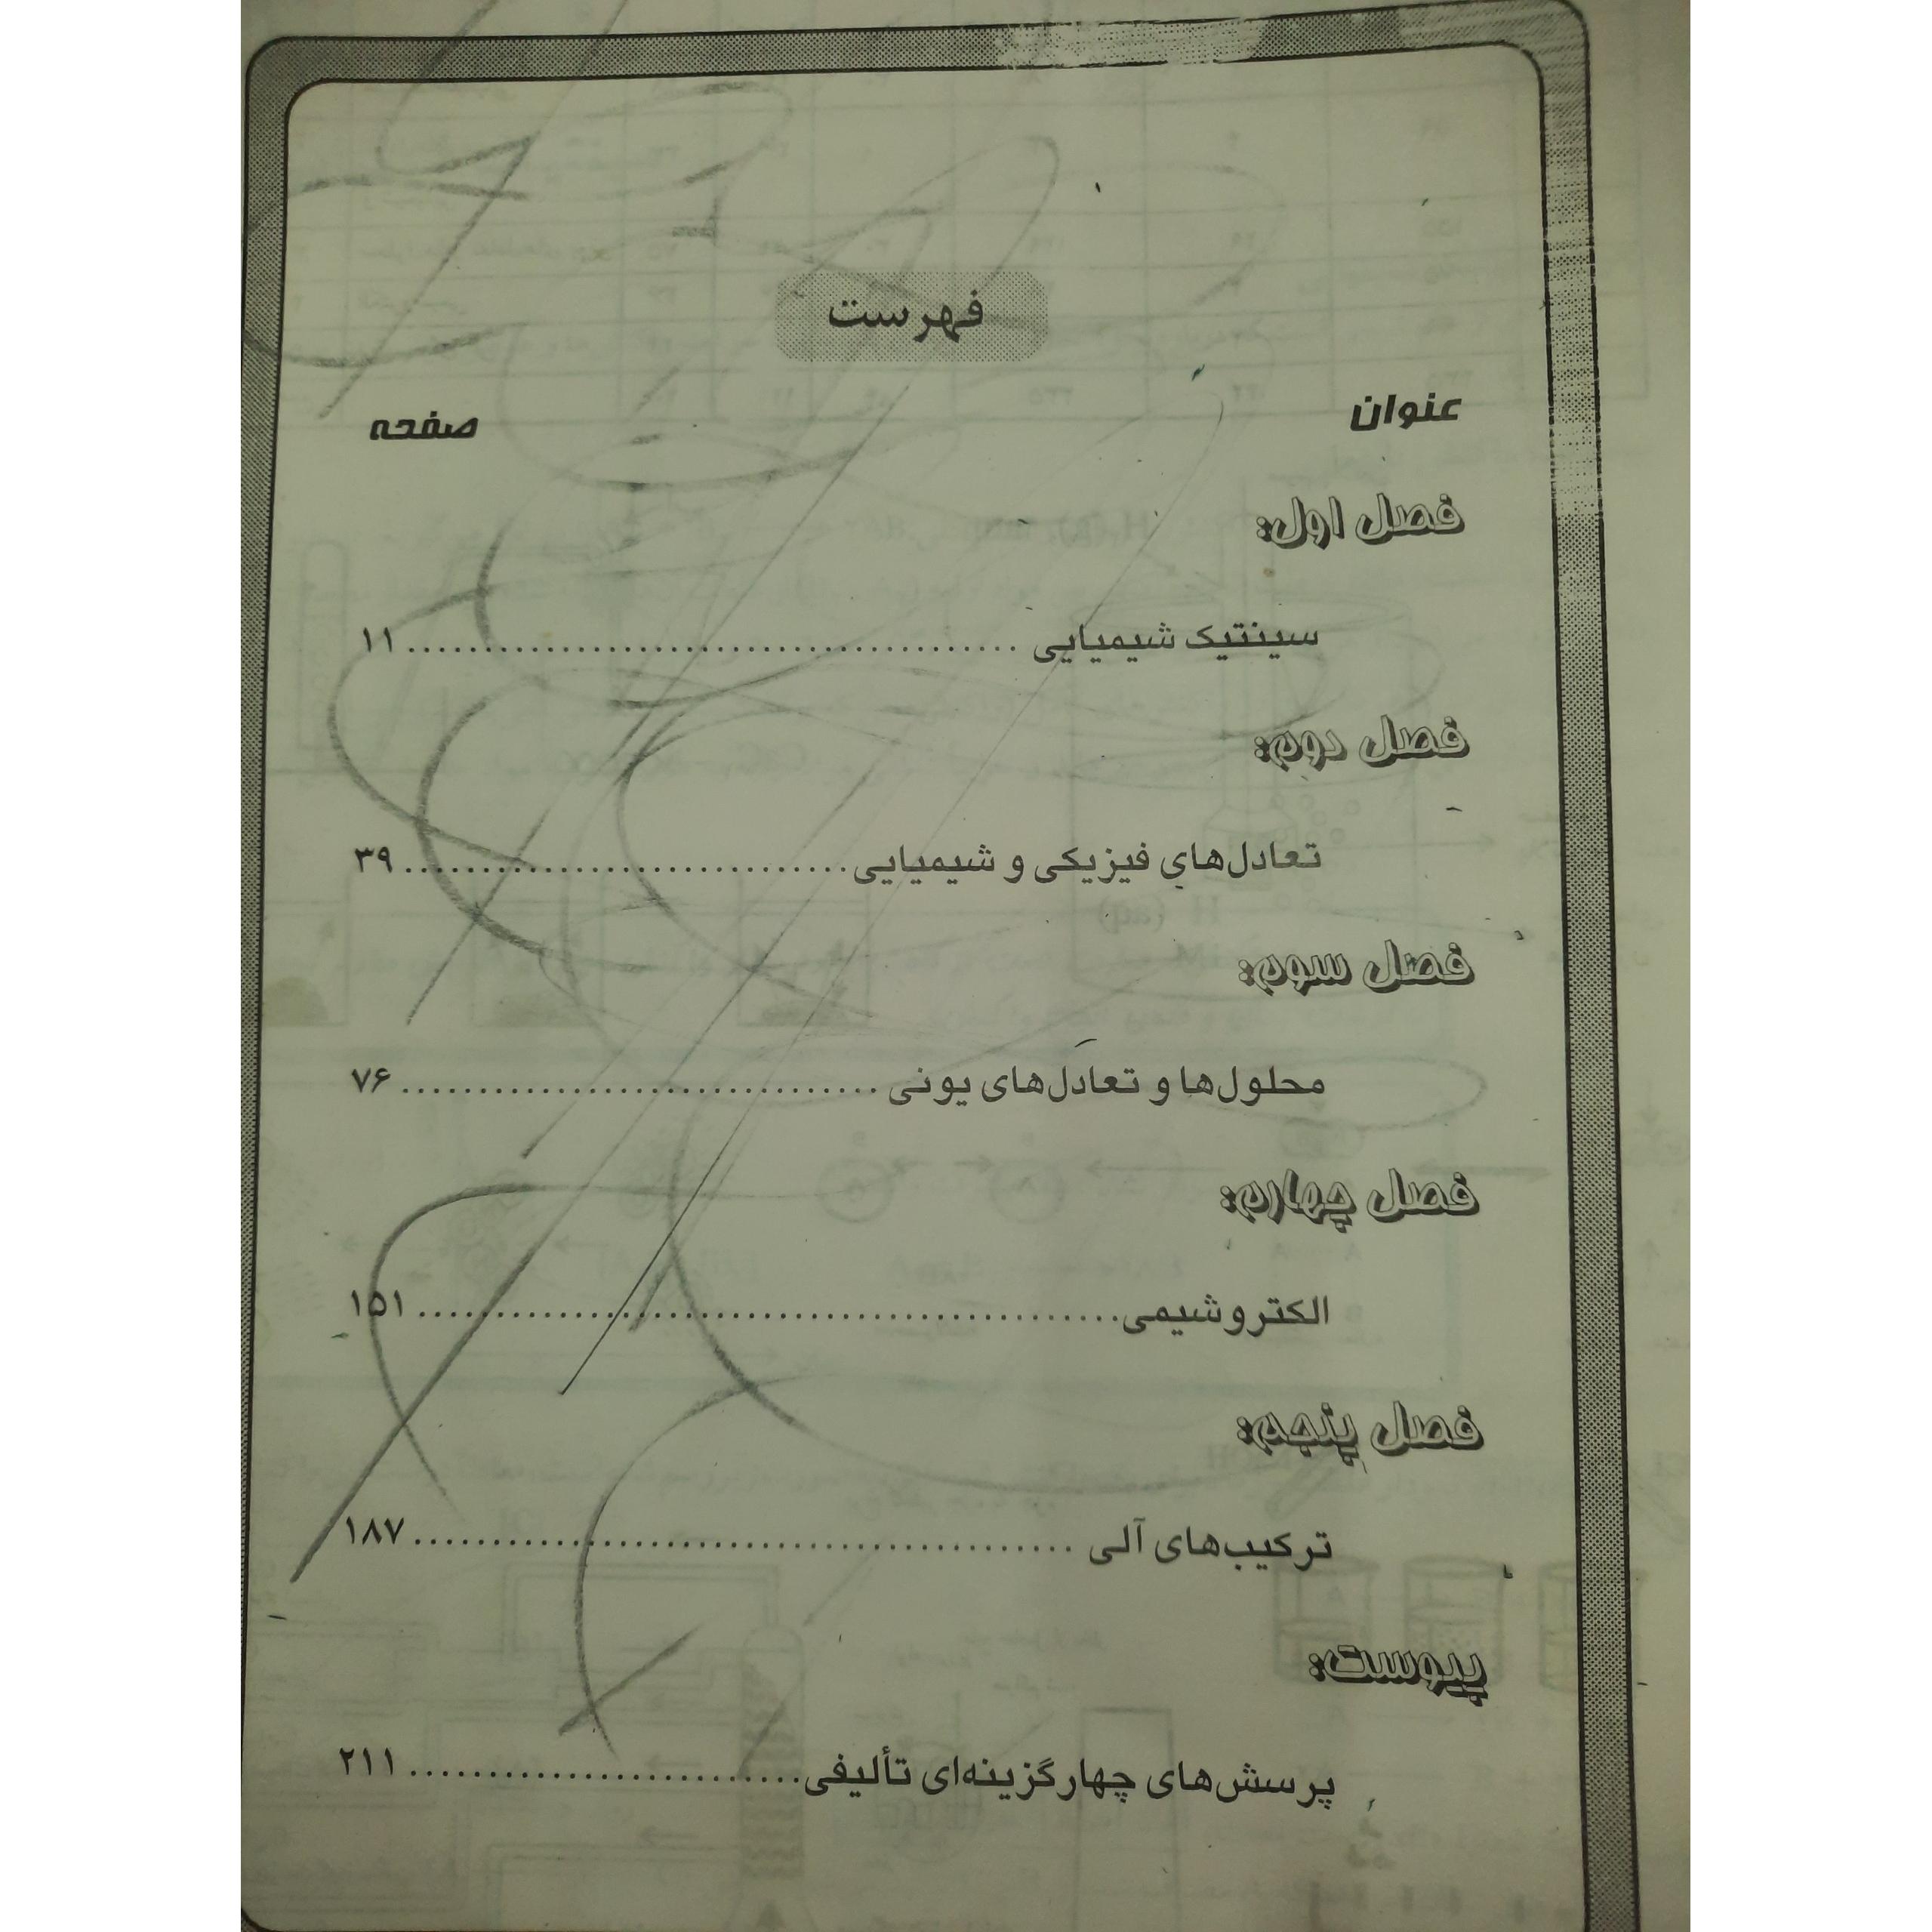 فهرست
عنوان صفحه
فصل اول:
سینتیک شیمیایی ........................................ ۱۱
فصل دوم:
تعادل‌های فیزیکی و شیمیایی ............................. ۳۹
فصل سوم:
محلول‌ها و تعادل‌های یونی ............................... ۷۶
فصل چهارم:
الکتروشیمی .............................................. ۱۵۱
فصل پنجم:
ترکیب‌های آلی ........................................... ۱۸۷
پیوست:
پرسش‌های چهارگزینه‌ای تألیفی .......................... ۲۱۱